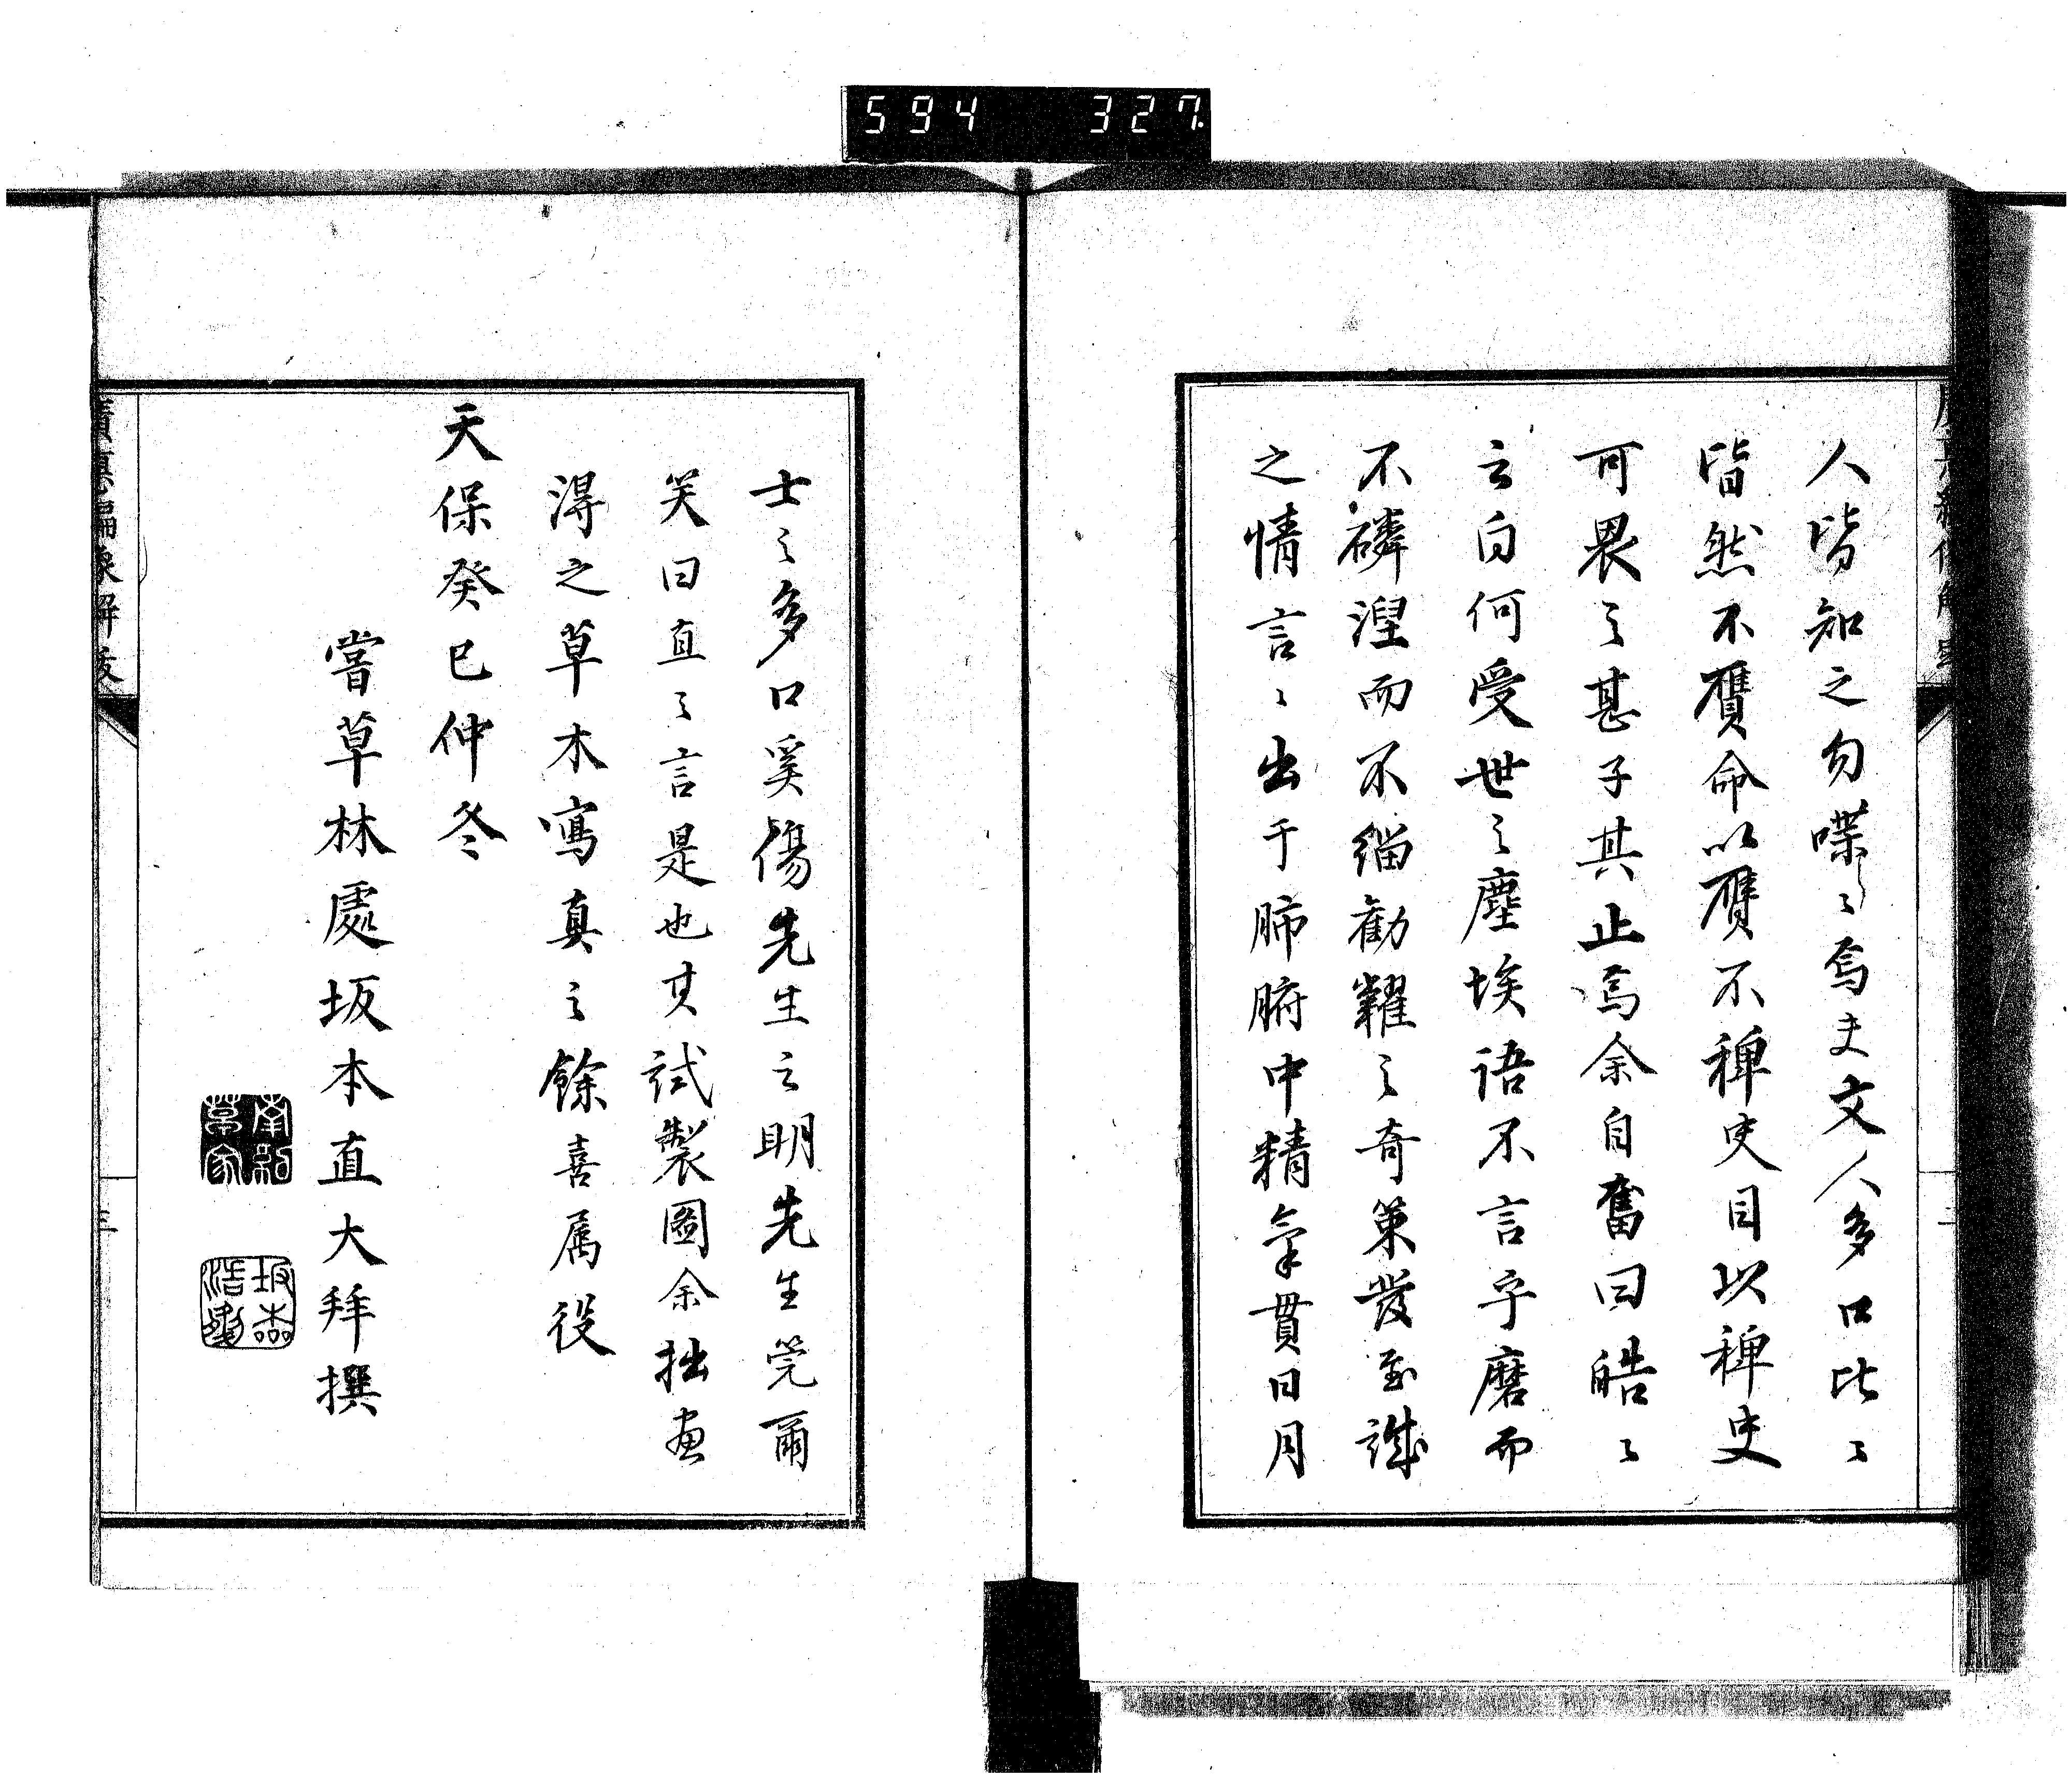 594 327
人皆知之勿喋〻焉夫文人多口比〻
皆然不贋命以贋不稗史目以稗史
可畏之甚子其止焉余自奮曰皓〻
云白何受世之塵埃語不言乎磨而
不磷涅而不緇勸糶之奇策發至誠
之情言〻出于肺腑中精氣貫日月
士之多口奚傷先生之明先生莞爾
笑曰直之言是也其試製圖余拙畫
淂之草木寫真之餘喜属役
天保癸巳仲冬
嘗草林處坂本直大拜撰
坂本
浩雪
三